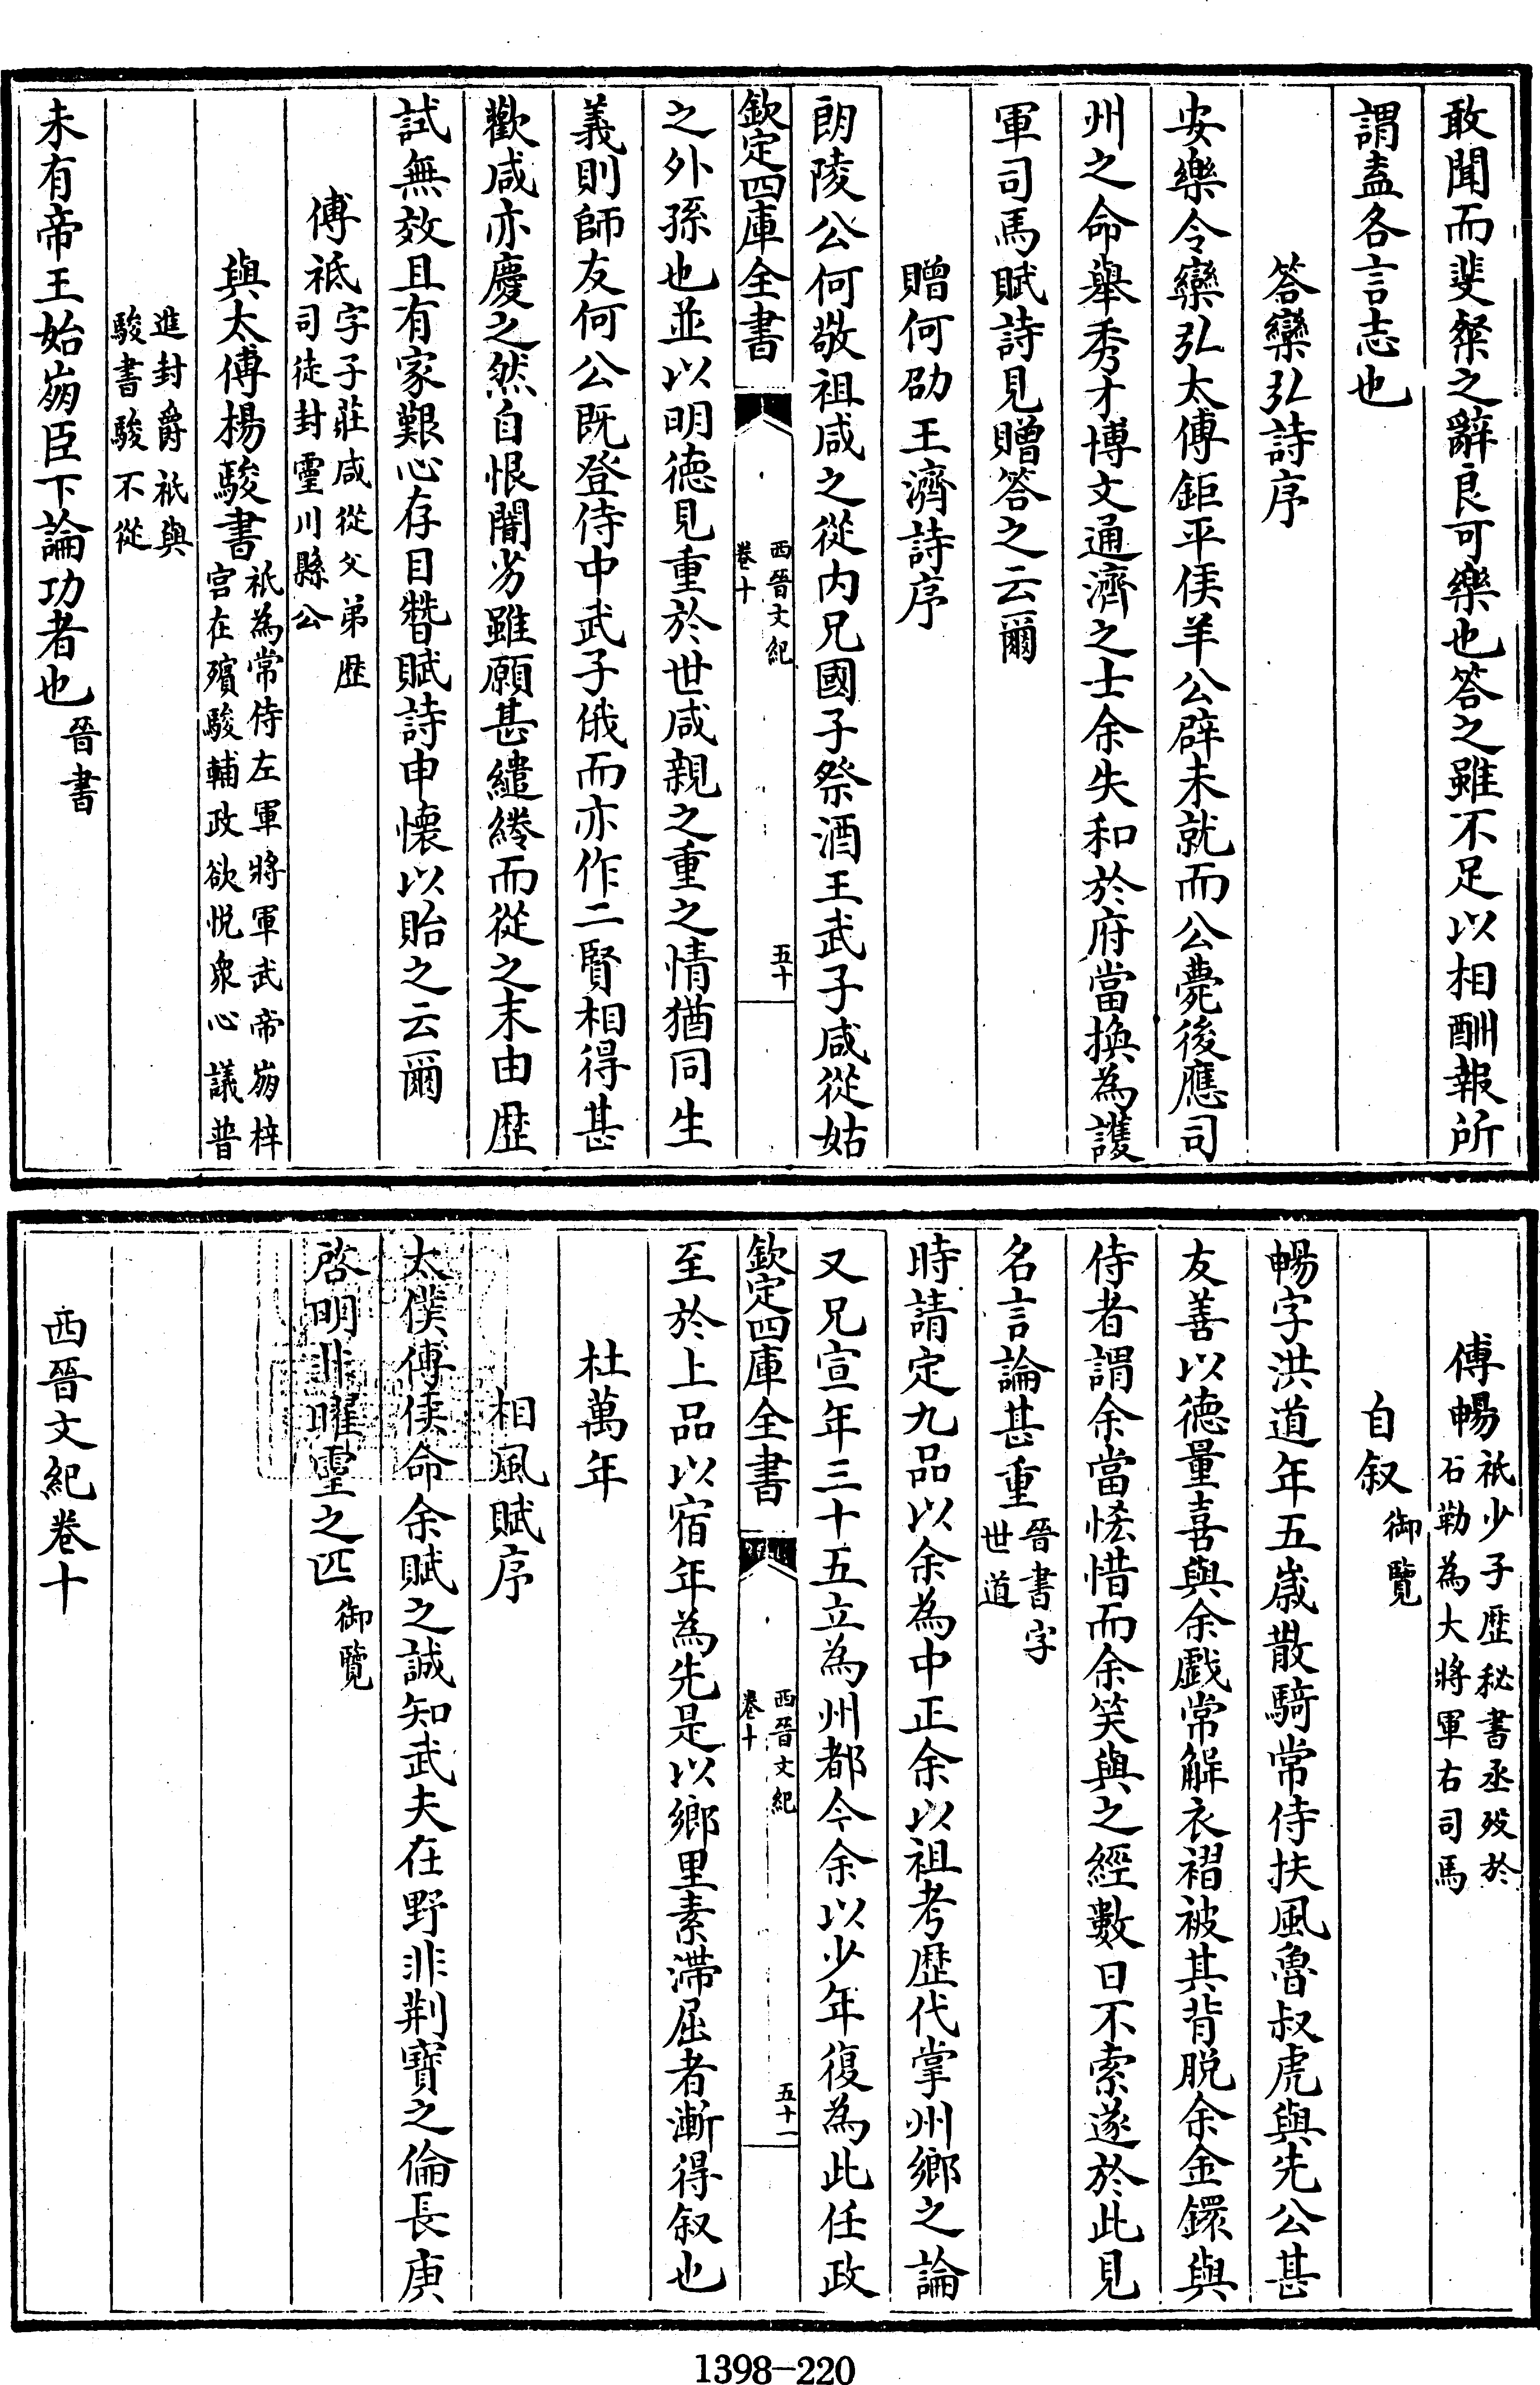 敢聞而斐粲之辭良可樂也答之雖不足以相酬報所
謂盖各言志也
答欒弘詩序
安樂令欒弘太傅鉅平侯羊公辟未就而公薨後應司
州之命舉秀才博文通濟之士余失和於府當換為護
軍司馬賦詩見贈答之云爾
贈何劭王濟詩序
朗陵公何敬祖咸之從内兄國子祭酒王武子咸從姑
欽定四庫全書
西晉文紀
卷十
五十
之外孫也並以明德見重於世咸親之重之情猶同生
義則師友何公既登侍中武子俄而亦作二賢相得甚
歡咸亦慶之然自恨闇劣雖願甚繾綣而從之末由歴
試無效且有家艱心存目瞥賦詩申懷以貽之云爾
傅祗字子莊咸從父弟歴
司徒封靈川縣公
與太傅楊駿書祗為常侍左軍將軍武帝崩梓
宫在殯駿輔政欲悦衆心議普
進封爵祗與
駿書駿不從
未有帝王始崩臣下論功者也晉書
傅暢祗少子歴秘書丞歿於
石勒為大將軍右司馬
自叙御覽
暢字洪道年五歲散騎常侍扶風魯叔虎與先公甚
友善以德量喜與余戲常解衣褶被其背脱余金鐶與
侍者謂余當恡惜而余笑與之經數日不索遂於此見
名言論甚重晉書字
世道
時請定九品以余為中正余以祖考歴代掌州鄉之論
又兄宣年三十五立為州都今余以少年復為此任政
欽定四庫全書
西晉文紀
卷十
五十一
至於上品以宿年為先是以鄉里素滯屈者漸得叙也
杜萬年
相風賦序
太僕傅侯命余賦之誠知武夫在野非荆寶之倫長庚
啓明非曜靈之匹御覽
西晉文紀卷十
1398-220